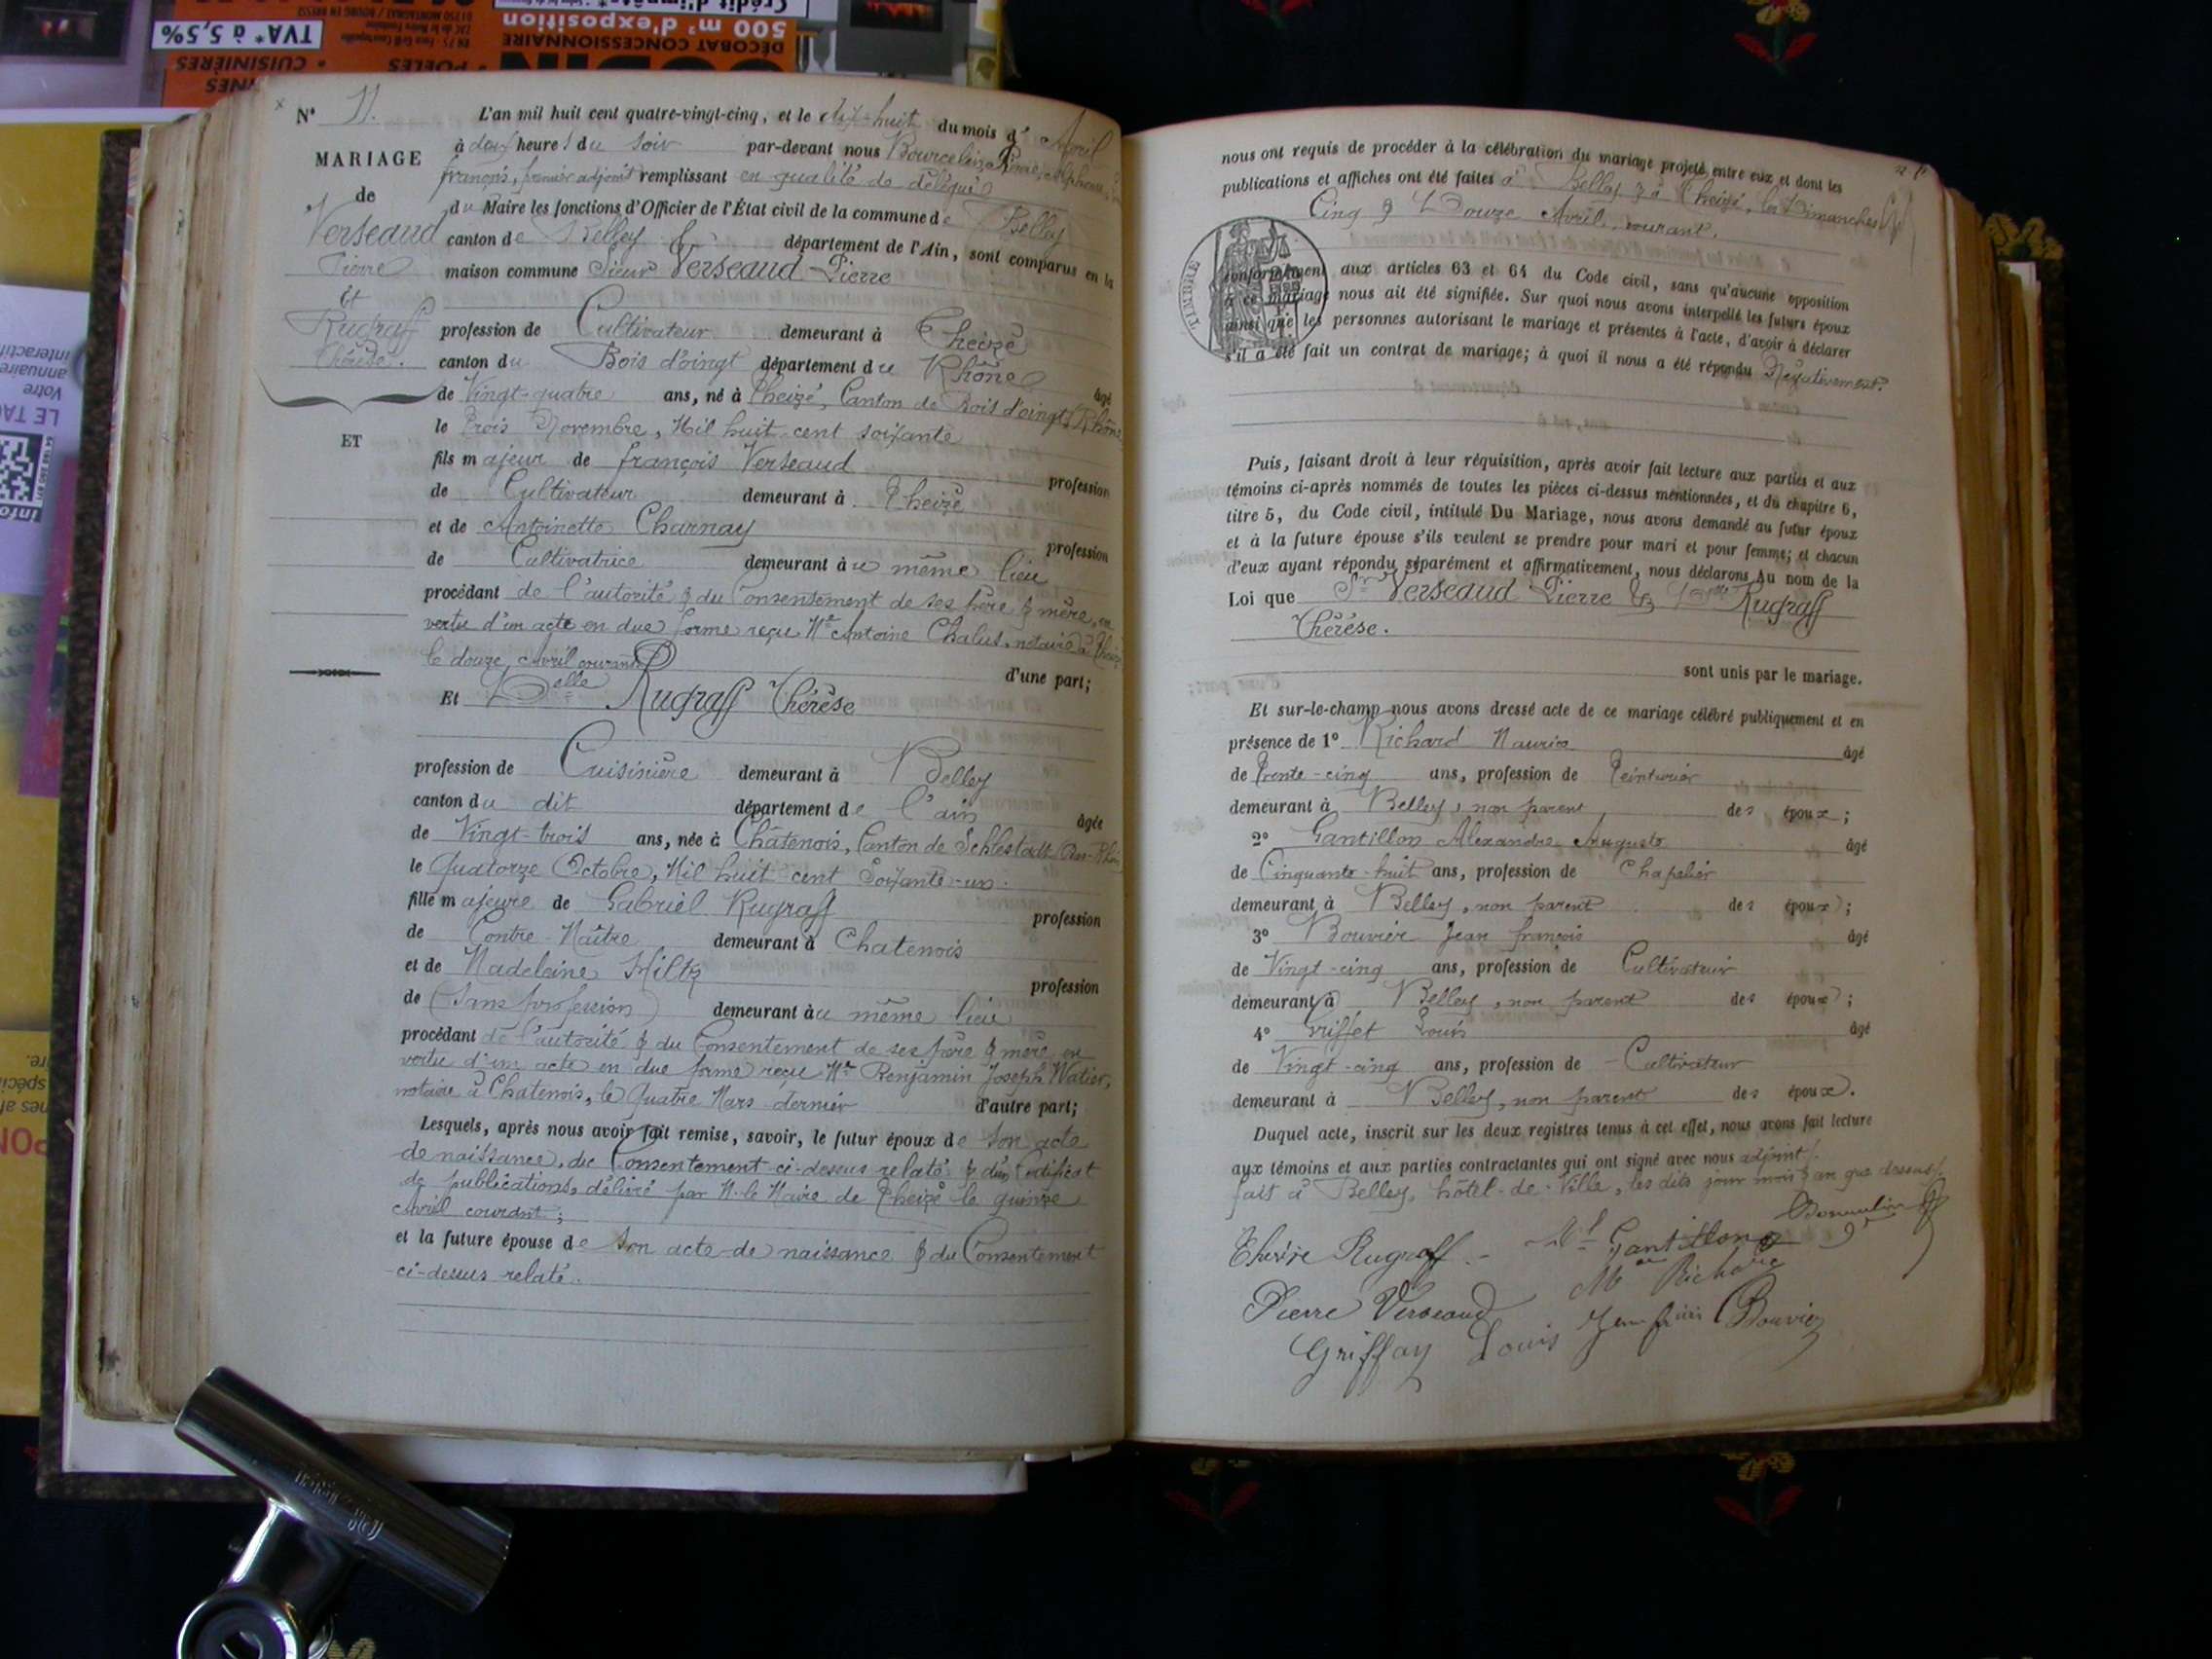 Crédit d'impôts*
500 m² d'exposition
DÉCOBAT CONCESSIONNAIRE
TVA* à 5,5%
• CUISINIÈRES
• POÊLES
Votre
annuaire
LE TAC
N° 11.
MARIAGE
de
Verseaud
Pierre
Et
Rugraff
Thérèse.
ET
L'an mil huit cent quatre-vingt-cinq, et le dix-huit du mois d' Avril
à deux heures du soir par-devant nous Bourcelin, Pierre, Alphonse,
françois, premier adjoint remplissant en qualité de délégué
du Maire les fonctions d'Officier de l'État civil de la commune de Belley
canton de Belley département de l'Ain, sont comparus en la
maison commune Sieur Verseaud Pierre
profession de Cultivateur demeurant à Theizé
canton du Bois d'oingt département du Rhône
âgé
de Vingt-quatre ans, né à Theizé, Canton de Bois d'oingt, Rhône
le Trois Novembre, Mil huit cent soixante
fils majeur de françois Verseaud
profession
de Cultivateur demeurant à Theizé
et de Antoinette Charnay
profession
de Cultivatrice demeurant au même lieu
procédant de l'autorité & du Consentement de ses père & mère, en
vertu d'un acte en due forme reçu Me Antoine Chalus, notaire à Theizé
le douze Avril courant
d'une part;
Et Delle Rugraff Thérèse
profession de Cuisinière demeurant à Belley
canton du dit département de l'ain
âgée
de Vingt-trois ans, née à Châtenois, Canton de Schlestadt, Bas-Rhin
le Quatorze Octobre, Mil huit cent Soixante-un.
fille majeure de Gabriel Rugraff
profession
de Contre-Maître demeurant à Chatenois
et de Madeleine Hiltz
profession
de (Sans profession) demeurant au même lieu
procédant de l'autorité & du Consentement de ses père & mère en
vertu d'un acte en due forme reçu Me Benjamin Joseph Watier,
notaire à Chatenois, le Quatre Mars dernier d'autre part;
Lesquels, après nous avoir fait remise, savoir, le futur époux de son acte
de naissance, du Consentement ci-dessus relaté & d'un Certificat
de publications, délivré par M. le Maire de Theizé le quinze
Avril courant;
et la future épouse de son acte de naissance & du Consentement
ci-dessus relaté.
nous ont requis de procéder à la célébration du mariage projeté entre eux et dont les
publications et affiches ont été faites à Belley & à Theizé, les Dimanches
Cinq & Douze Avril, courant.
TIMBRE
conformément aux articles 63 et 64 du Code civil, sans qu'aucune opposition
à ce mariage nous ait été signifiée. Sur quoi nous avons interpellé les futurs époux
ainsi que les personnes autorisant le mariage et présentes à l'acte, d'avoir à déclarer
s'il a été fait un contrat de mariage; à quoi il nous a été répondu Négativement.
Puis, faisant droit à leur réquisition, après avoir fait lecture aux parties et aux
témoins ci-après nommés de toutes les pièces ci-dessus mentionnées, et du chapitre 6,
titre 5, du Code civil, intitulé Du Mariage, nous avons demandé au futur époux
et à la future épouse s'ils veulent se prendre pour mari et pour femme; et chacun
d'eux ayant répondu séparément et affirmativement, nous déclarons Au nom de la
Loi que Sr Verseaud Pierre & Delle Rugraff
Thérèse.
sont unis par le mariage.
Et sur-le-champ nous avons dressé acte de ce mariage célébré publiquement et en
présence de 1° Richard Maurice âgé
de Trente-cinq ans, profession de Teinturier
demeurant à Belley, non parent des époux;
2° Gantillon Alexandre Auguste âgé
de Cinquante-huit ans, profession de Chapelier
demeurant à Belley, non parent des époux;
3° Bouvier Jean françois âgé
de Vingt-cinq ans, profession de Cultivateur
demeurant à Belley, non parent des époux;
4° Griffet Louis âgé
de Vingt-cinq ans, profession de Cultivateur
demeurant à Belley, non parent des époux.
Duquel acte, inscrit sur les deux registres tenus à cet effet, nous avons fait lecture
aux témoins et aux parties contractantes qui ont signé avec nous adjoint.
fait à Belley, hôtel-de-Ville, les dits jour mois & an que dessus.
Therèse Rugraff Gantillon
Richard
Pierre Verseaud
Griffay Louis Bouvier